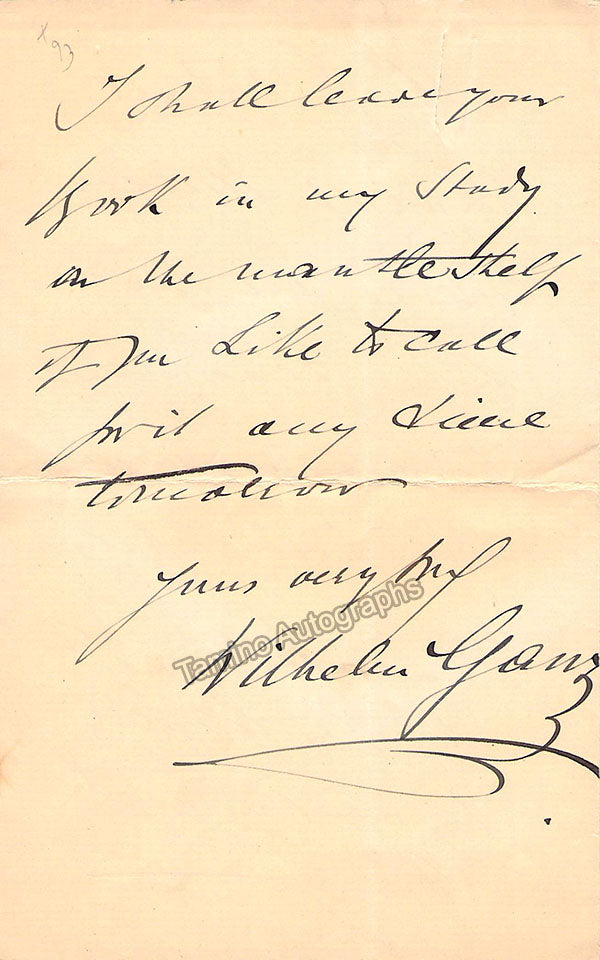 x93
I shall leave your
Book in my Study
on the mantle shelf
if you Like to call
for it any time
tomorrow
yours very try
Tamino Autographs
Wilhelm Ganz